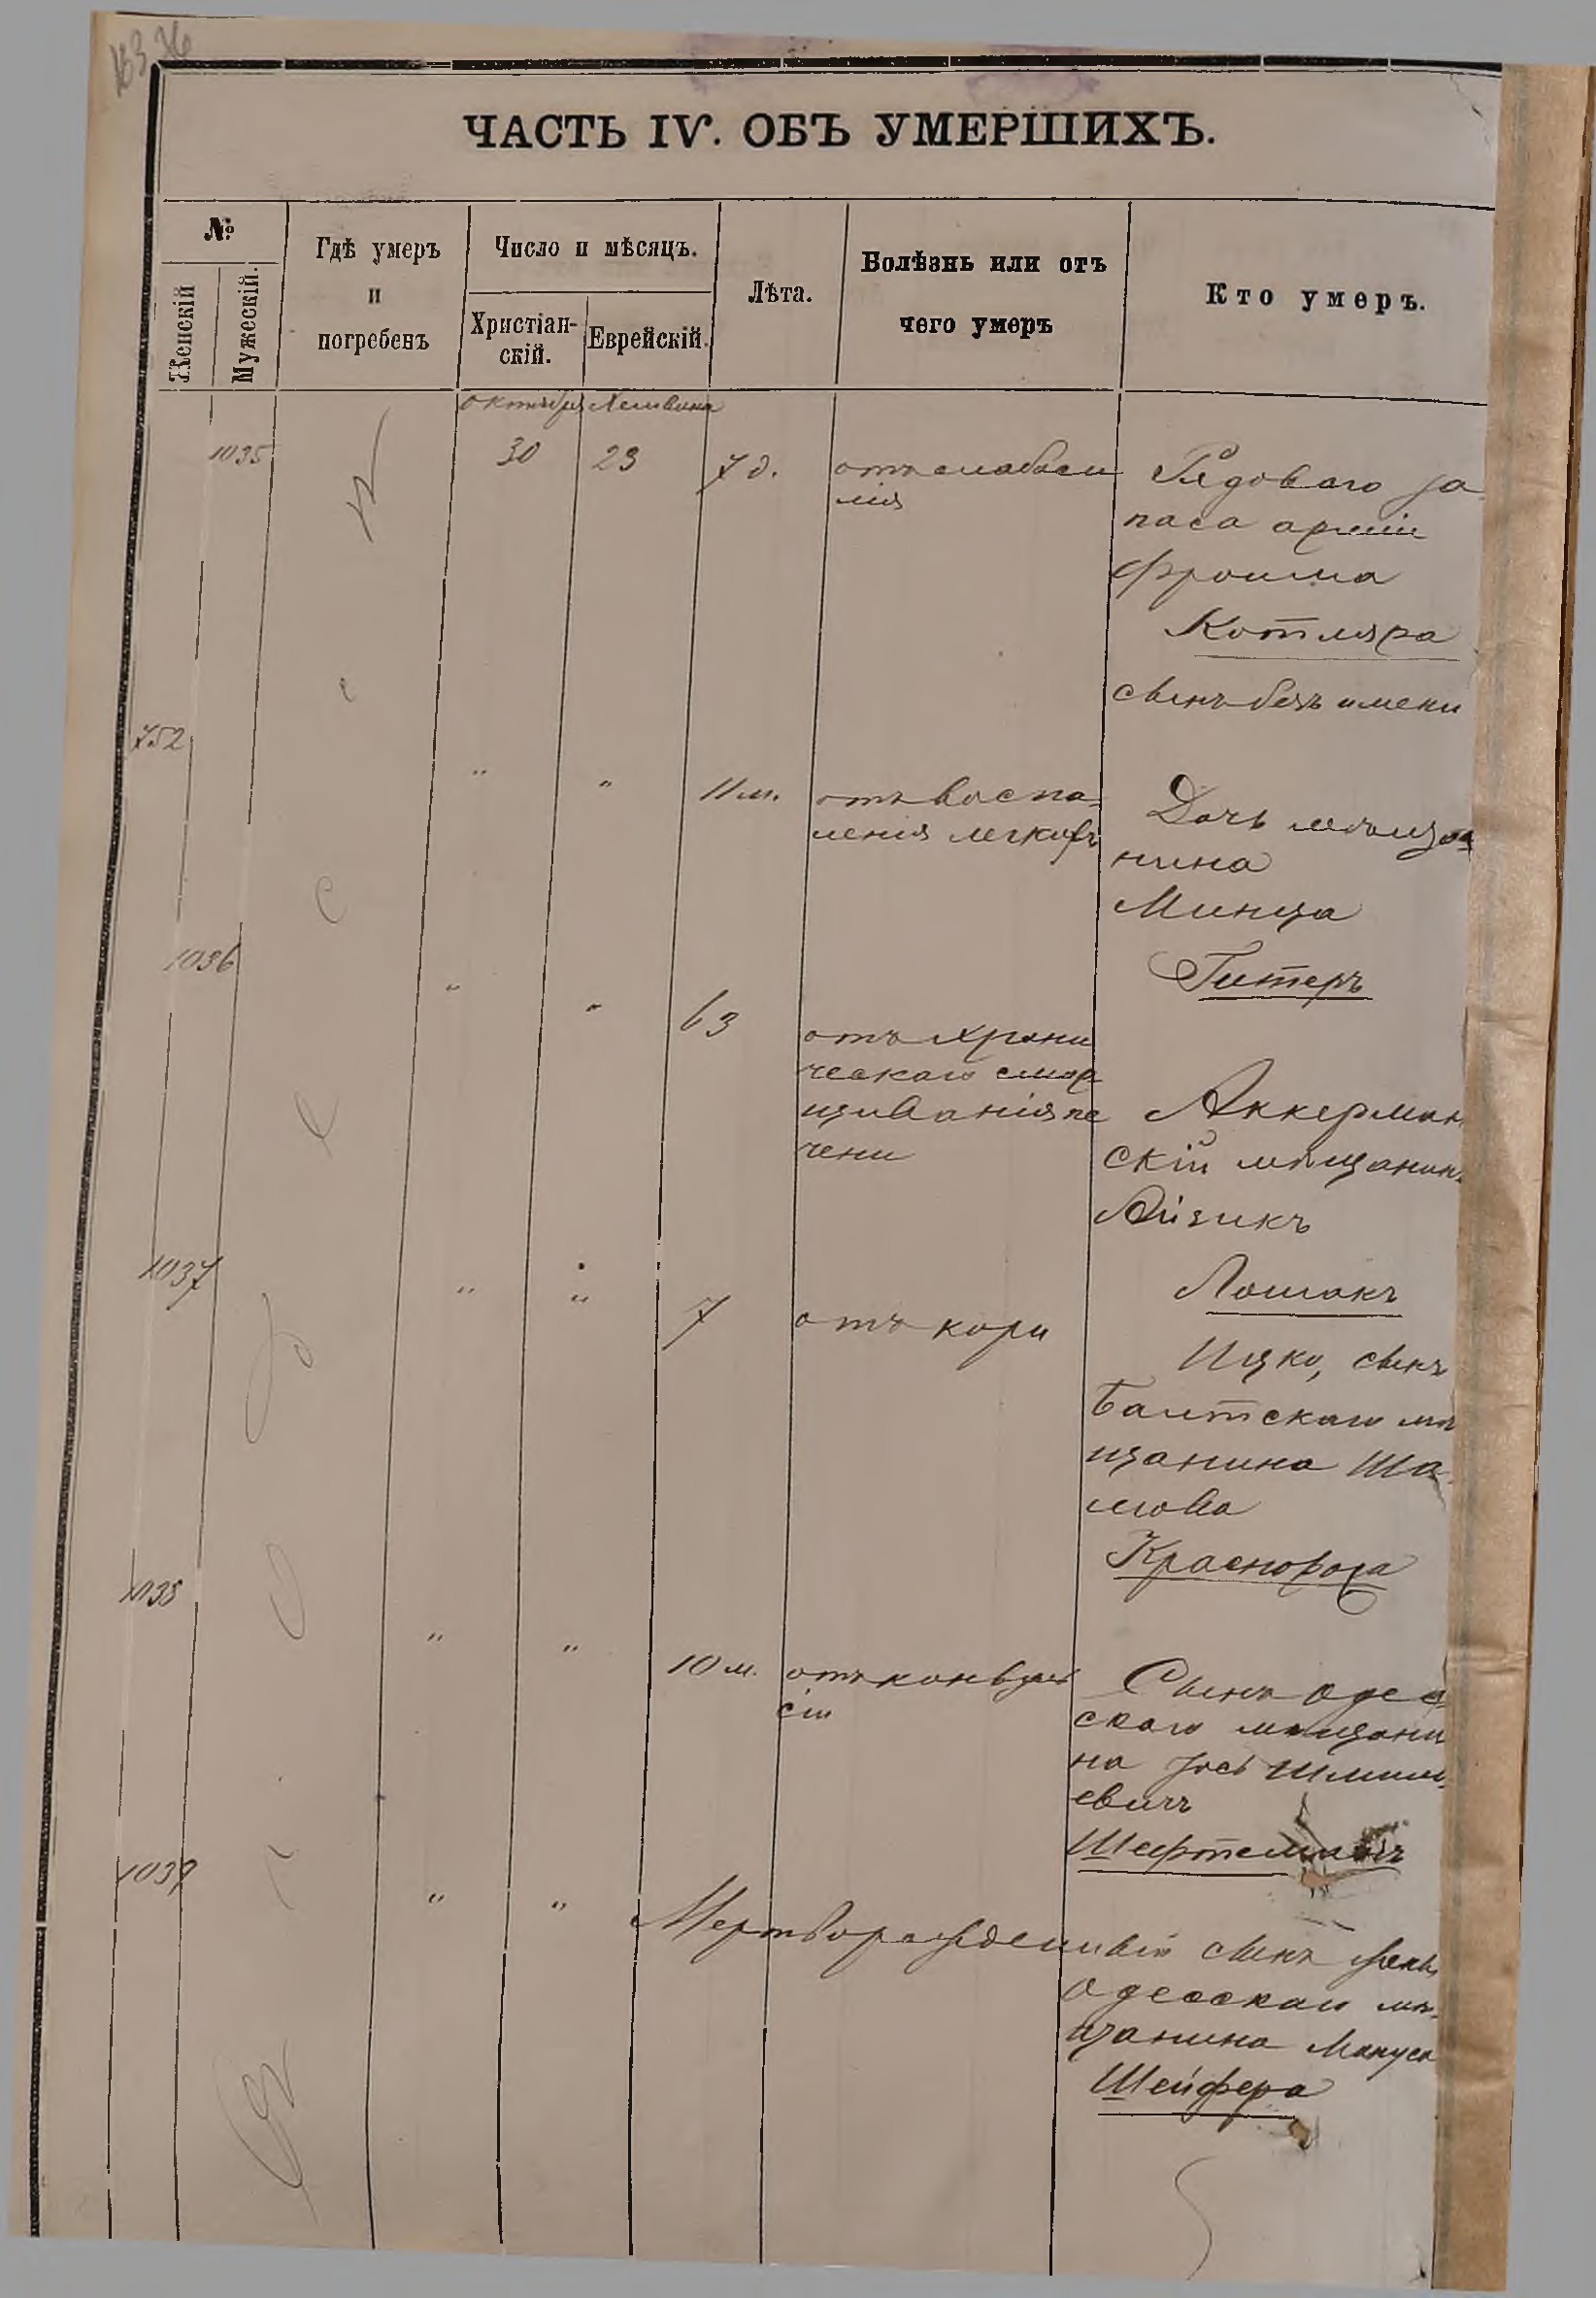 ЧАСТЬ IV. ОБЪ УМЕРШИХЪ.
№
Женскій
Мужескій.
Гдѣ умеръ
и
погребенъ
Число и мѣсяцъ.
Христіан-
скій.
Еврейскій.
Лѣта.
Болѣзнь или отъ
чего умеръ
Кто умеръ.
октября Хешвина
1035
30
23
7 д.
отъ слабоси
лія
Рядоваго за
паса арміи
Фроима
Котляра
сынъ безъ имени
752
"
"
11 м.
отъ воспа-
ленія легкихъ
Дочь мѣща
нина
Минца
Гитеръ
1036
"
"
63
отъ хрони
ческаго смор
щиванія пе
чени
Аккерман
скій мѣщанинъ
Айзикъ
Лошакъ
1037
"
"
7
отъ кори
Ицко, сынъ
Балтскаго мѣ
щанина Ша-
мова
Краснорога
1038
"
"
10 м.
отъ конвуль
сіи
Сынъ одес
скаго мѣщани
на
евичъ
1039
"
"
Мертворожденный сынъ
Одесскаго мѣ-
щанина Мануса
Шейфера
Одесса